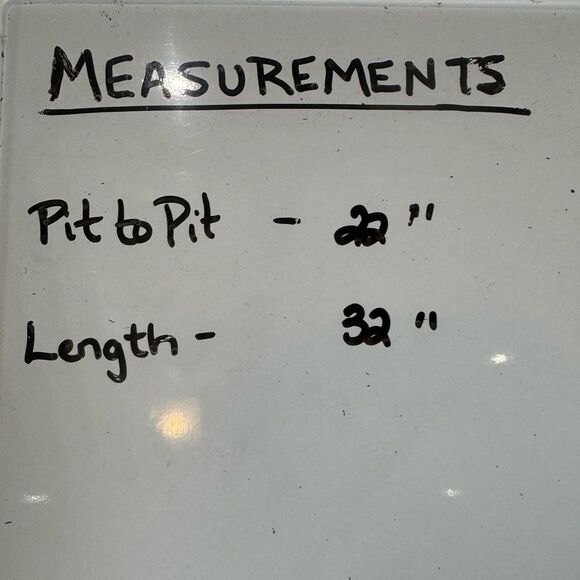 MEASUREMENTS
Pit to Pit - 22"
Length - 32"